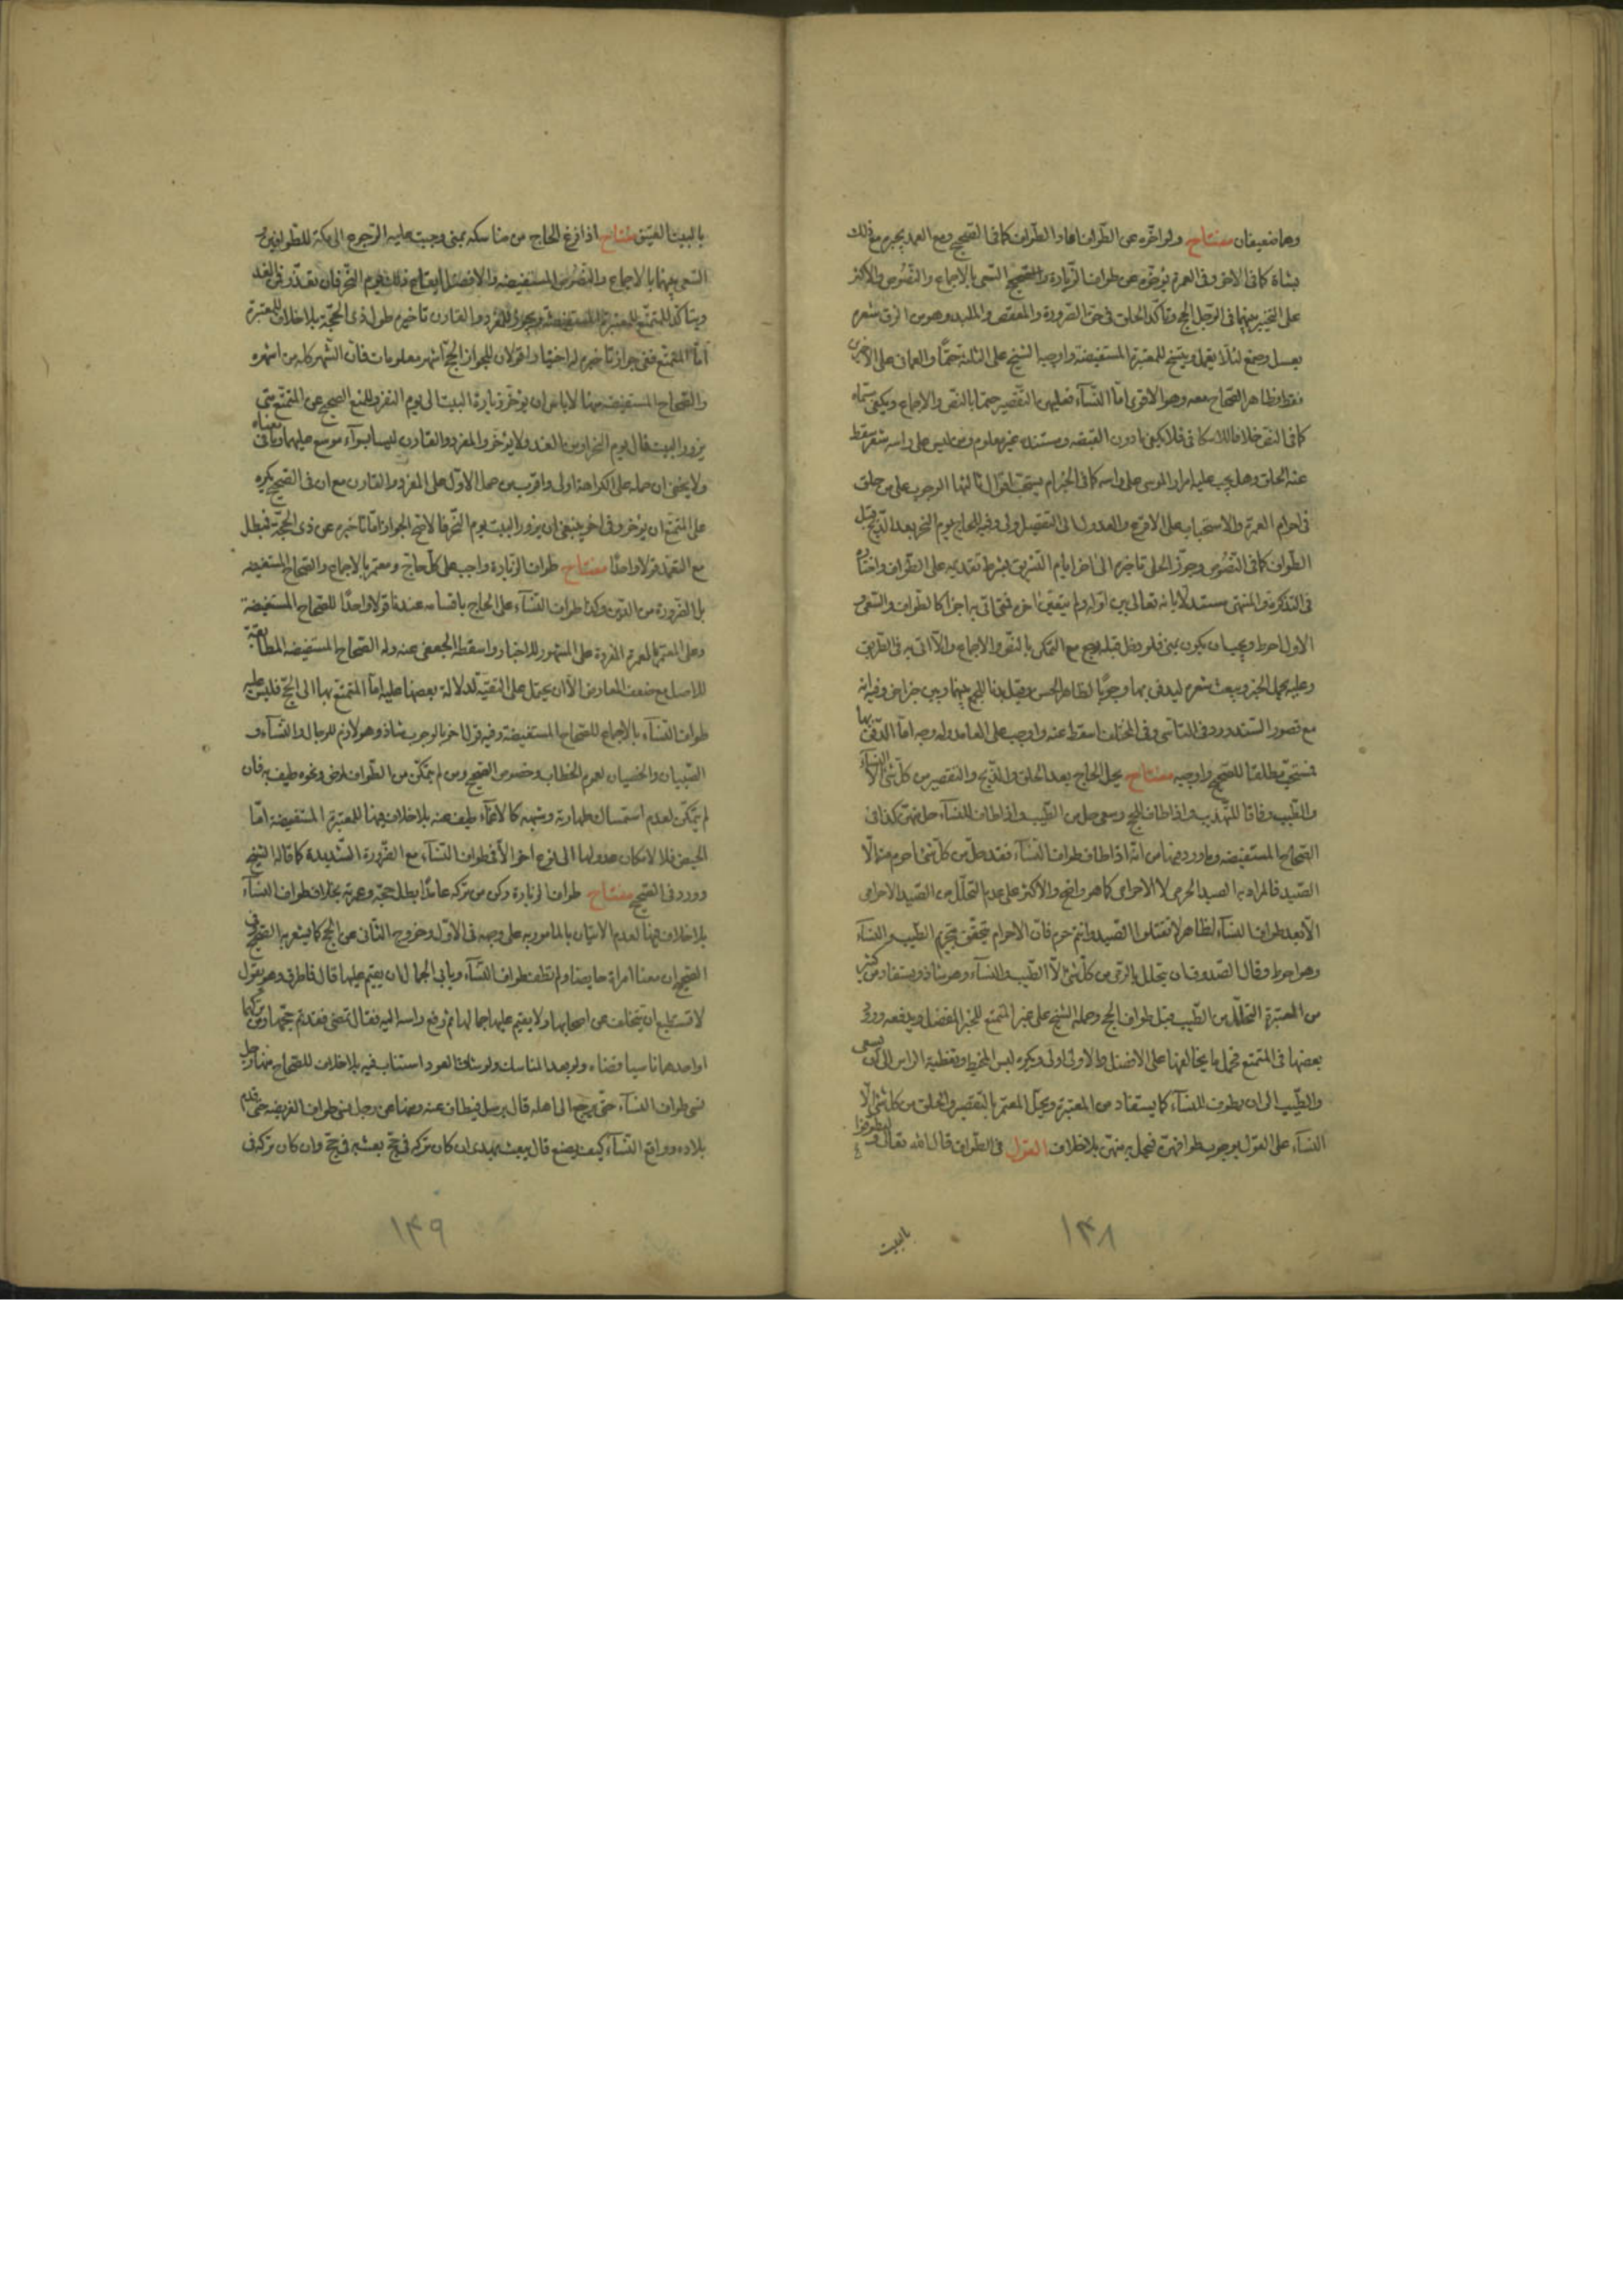 وهما ضعيفان مفتاح ولو اخره عن الطواف اعاد الطواف كما في الصحيح ومع العمد يجبر مع ذلك
بشاة كما في الاخر وفي العمرة يؤخره عن طواف الزيارة والسعي بالاجماع والنصوص والاكثر
على التخيير بينهما في الرجل الحج وتأكد الحلق في حق الصرورة والمعقص والملبد وهو من الزق شعره
بعسل وصمغ لئلا يقمل ويتسخ للمعتبرة المستفيضة واوجبه الشيخ على الثلثة حتما والعماني على الاخيرين
فقط وظاهر الصحاح معه وهو الاقوى اما النساء فعليهن التقصير حتما بالنص والاجماع ويكفي مسماه
كما في النص خلافا للاسكافي فلا يكفي ما دون القبضة ومستنده غير معلوم ومن ليس على راسه شعر سقط
عنه الحلق وهل يجب عليه امرار الموسى على راسه كما في الخبر ام يستحب اقوال ثالثها الوجوب على من حلق
في احرام العمرة والاستحباب على الاقرع والعدول الى التقصير اولى وقيد الحاج يوم النحر بعد الذبح قبل
الطواف كما في النصوص وجوز الحلبي تاخيره الى اخر ايام التشريق بشرط تقديمه على الطواف واختاره
في التذكرة والمنتهى مستدلا بانه تعالى بين اوله ولم يتعين اخره فمتى اتى به اجزأ كالطواف والسعي و
الاول احوط ويجب ان يكون بمنى فلو رحل قبله رجع مع التمكن بالنص والاجماع والا اتى به في الطريق
وعليه يحمل الخبر ويبعث شعره ليدفن بها وجوبا لظاهر الحسن وقيل ندبا للجمع بينهما وبين خبر اخر وفيه انه
مع قصور السند ورد في الناسي وفي المختلف اسقط عنه واوجب على العامد وله وجه اما الدفن بها
فمستحب مطلقا للصحيح واوجبه مفتاح يحل الحاج بعد الحلق والذبح والتقصير من كل شئ الا النساء
والطيب وفاقا للتهذيب واذا طاف للحج وسعى حل من الطيب واذا طاف للنساء حل منهن كذا في
الصحاح المستفيضة وما ورد فيها من انه اذا طاف طواف النساء فقد حل من كل شئ احرم منه الا
الصيد فالمراد به الصيد الحرمي لا الاحرامي كما هو واضح والاكثر على عدم التحلل من الصيد الاحرامي
الا بعد طواف النساء لظاهر لا تقتلوا الصيد وانتم حرم فان الاحرام يتحقق بتحريم الطيب والنساء
وهو احوط وقال الصدوقان يتحلل بالرمي من كل شئ الا الطيب والنساء وهو شاذ ويستفاد من كثير
من المعتبرة التحلل من الطيب قبل طواف الحج وحمله الشيخ على غير المتمتع للخبر المفصل ويدفعه ورود
بعضها في المتمتع فحمل ما يخالفها على الافضل والاولى اولى ويكره لبس المخيط وتغطية الراس الى ان يسعى
والطيب الى ان يطوف للنساء كما يستفاد من المعتبرة ويحل المعتمر بالتقصير والحلق من كل شئ الا
النساء على القول بوجوب طوافهن فيحل به منهن بلا خلاف القول في الطواف قال الله تعالى وليطوفوا
بالبيت
١٣٨
بالبيت العتيق مفتاح اذا فرغ الحاج من مناسكه بمنى وجبت عليه الرجوع الى مكة للطوافين و
السعي بينهما بالاجماع والنصوص المستفيضة والافضل ايقاع ذلك يوم النحر فان تعذر ففي الغد
ويتاكد للمتمتع للمعتبرة المستفيضة ويجوز للمفرد والقارن تاخيره طول ذي الحجة بلا خلاف للمعتبرة
اما المتمتع ففي جواز تاخيره له اختيارا قولان للجواز الحج اشهر معلومات فان الشهر كله من اشهره
والصحاح المستفيضة منها لا باس ان يؤخر زيارة البيت الى يوم النفر وللمنع الصحيح عن المتمتع متى
يزور البيت قال يوم النحر او من الغد ولا يؤخر والمفرد والقارن ليسا بسواء موسع عليهما وفي معناه
ولا يخفى ان حمله على الكراهة اولى واقرب من حمل الاول على المفرد والقارن مع ان في الصحيح يكره
على المتمتع ان يؤخر وفي اخر ينبغي ان يزور البيت يوم النحر فالاصح الجواز اما تاخيره عن ذي الحجة فيبطل
مع التعمد قولا واحدا مفتاح طواف الزيارة واجب على كل حاج ومعتمر بالاجماع والصحاح المستفيضة
بل الضرورة من الدين وكذا طواف النساء على الحاج باقسامه عندنا قولا واحدا للصحاح المستفيضة
وعلى المعتمر بالعمرة المفردة على المشهور للاخبار واسقطه الجعفي عنه وله الصحاح المستفيضة المطابقة
للاصل مع ضعف المعارض الا ان يحمل على التقية لدلالة بعضها عليه اما المتمتع بها الى الحج فليس عليه
طواف النساء بالاجماع للصحاح المستفيضة وفيه قول اخر بالوجوب شاذ وهو لازم للرجال والنساء و
الصبيان والخصيان لعموم الخطاب وخصوص الصحيح ومن لم يتمكن من الطواف لمرض ونحوه طيف به فان
لم يتمكن لعدم استمساك طهارته وشبهه كالاغماء طيف عنه بلا خلاف فيهما للمعتبرة المستفيضة اما
الحيض فلا لامكان عدولها الى نوع اخر الا في طواف النساء مع الضرورة الشديدة كما قاله الشيخ
وورد في الصحيح مفتاح طواف الزيارة ركن من تركه عامدا بطل حجه وعمرته بخلاف طواف النساء
بلا خلاف فيهما لعدم الاتيان بالمامور به على وجهه في الاول وخروج الثاني عن الحج كما يشعر به الصحيح وفي
الصحيح ان معنا امراة حايضا ولم تطف طواف النساء ويابى الجمال ان يقيم عليها قال فاطرق وهو يقول
لا تستطيع ان تتخلف عن اصحابها ولا يقيم عليها جمالها ثم رفع راسه اليه فقال تمضي فقد تم حجها ومن تركهما
او احدهما ناسيا قضاه ولو بعد المناسك ولو شق العود استناب فيه بلا خلاف للصحاح منها رجل
نسي طواف النساء حتى يرجع الى اهله قال يرسل فيطاف عنه ومنها عن رجل نسي طواف الفريضة حتى قدم
بلاده وواقع النساء كيف يصنع قال يبعث بهدي ان كان تركه في حج بعث به في حج وان كان تركه في
١٣٩